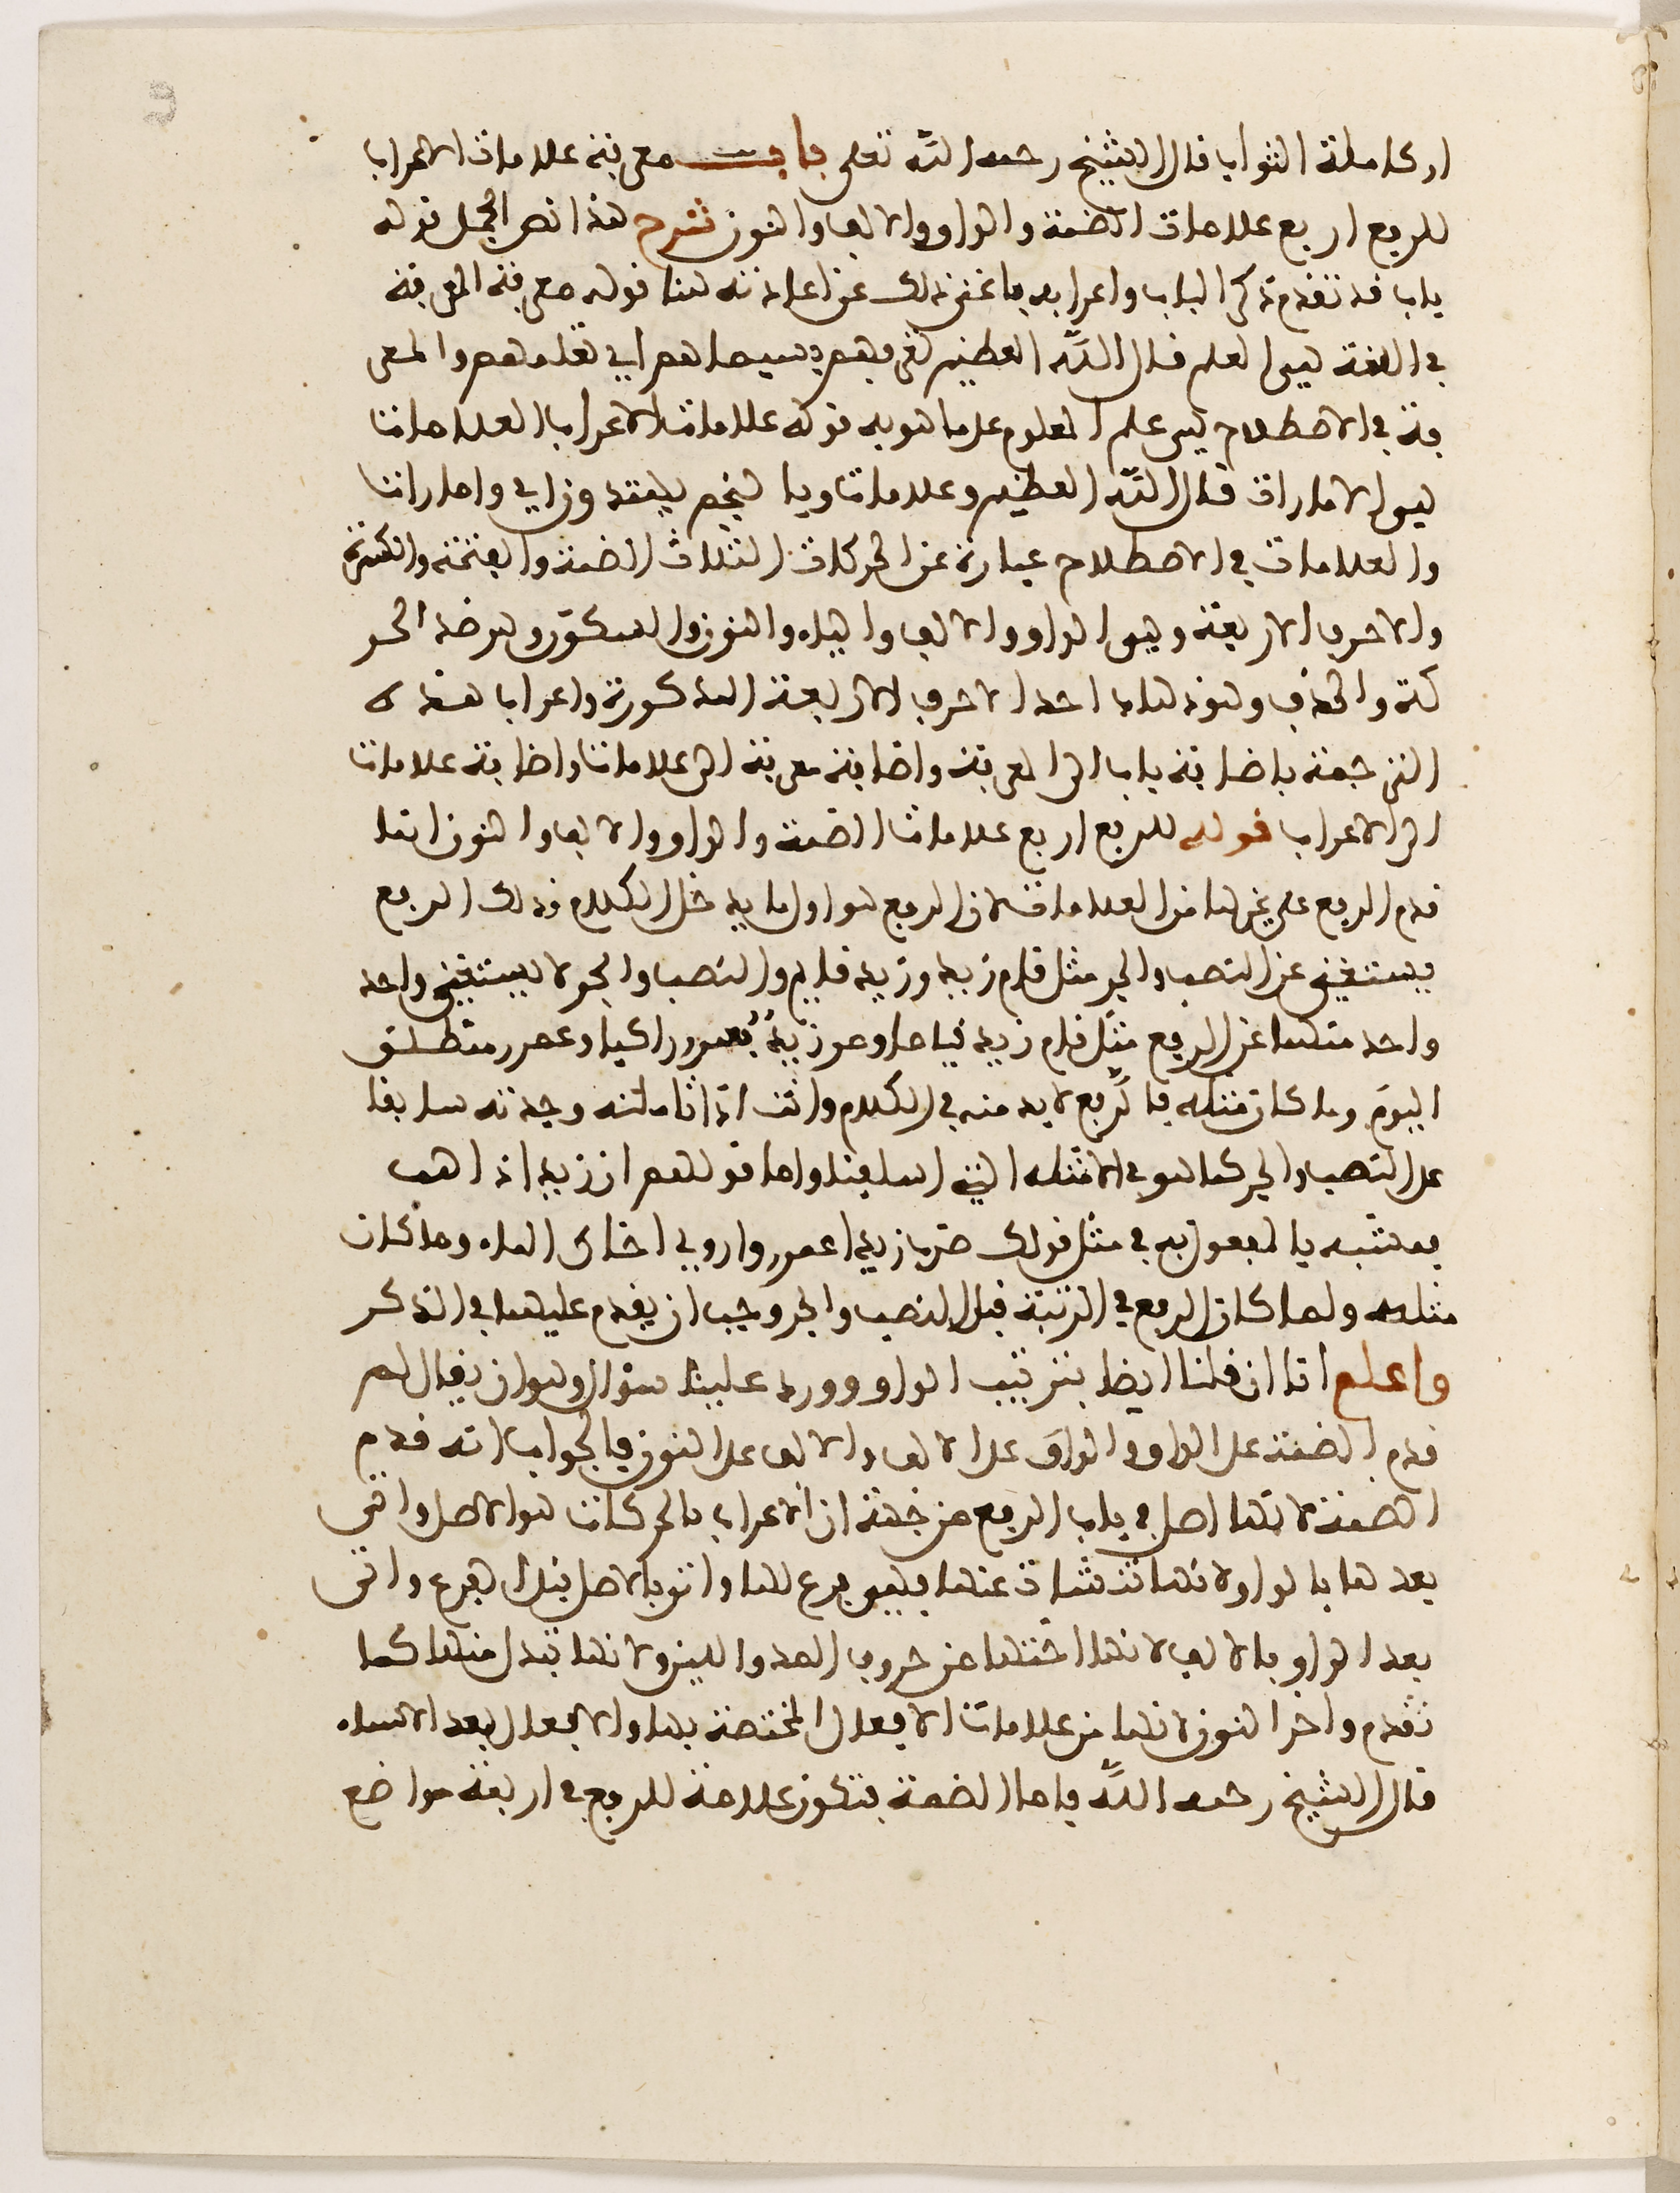 ار كاملة الثواب قال الشيخ رحمه الله تعلى باب معرفة علامات الاعراب
للرفع اربع علامات الضمة والواو والالف والنون شرح هذا نص الجمل قوله
باب قد تقدم ذكر الباب واعرابه فاغنى ذلك عن اعادته هنا قوله معرفة المعرفة
في اللغة هي العلم قال الله العظيم تعرفهم بسيماهم اي تعلمهم والمعر
فة في الاصطلاح هي علم المعلوم على ما هو به قوله علامات الاعراب العلامات
هي الامارات قال الله العظيم وعلامات وبالنجم هم يهتدون اي وامارات
والعلامات في الاصطلاح عبارة عن الحركات الثلاث الضمة والفتحة والكسرة
والاحرف الاربعة وهي الواو والالف والياء والنون والسكون وهو ضد الحر
كة والحذف وهو ذهاب احد الاحرف الاربعة المذكورة واعراب هذه
الترجمة باضافة باب الى المعرفة واضافة معرفة الى علامات واضافة علامات
الى الاعراب قوله للرفع اربع علامات الضمة والواو والالف والنون انما
قدم الرفع على غيرها من العلامات لان الرفع هو اول ما يدخل الكلام وذلك الرفع
يستغني عن النصب والجر مثل قام زيد وزيد قايم والنصب والجر لا يستغني واحد
واحد منهما عن الرفع مثل قام زيد قياما ومر زيد بعمرو راكبا وعمر منطلق
اليوم وما كان مثله فالرفع لا بد منه في الكلام وانت اذا تاملته وجدته سابقا
على النصب والجر كما هو في الامثلة التي اسلفنا واما قولهم ان زيدا ذاهب
فمشبه بالمفعول به في مثل قولك ضرب زيدا عمرو واروى اخاك الماء وما كان
مثله ولما كان الرفع في الرتبة قبل النصب والجر وجب ان يقدم عليهما في الذكر
واعلم انا ان قلنا ايضا بترتيب الواو وورد علينا سؤال وهو ان يقال لم
قدم الضمة على الواو والواو على الالف والالف على النون فالجواب انه قدم
الضمة لانها اصل في باب الرفع من جهة ان الاعراب بالحركات هو الاصل واتى
بعدها بالواو لانها تنشات عنها فهي فرع لها واتى بالاصل قبل الفرع واتى
بعد الواو بالالف لانها اختها من حروف المد واللين ولانها تبدل منها كما
تقدم واخر النون لانها من علامات الافعال المختصة بها والافعال بعد الاسماء
قال الشيخ رحمه الله فاما الضمة فتكون علامة للرفع في اربعة مواضع